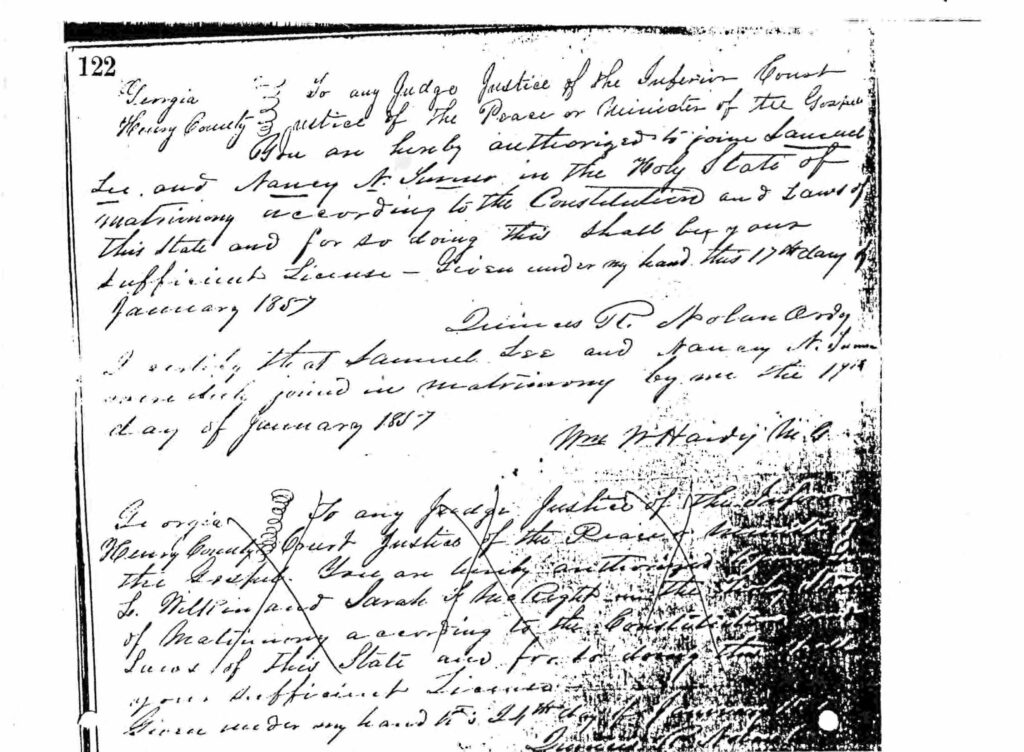 122
Georgia To any Judge Justice of the Inferior Court
Henry County Justice of the Peace or Minister of the Gospel
You are hereby authorized to joine Samuel
Lee and Nancy N. Turner in the Holy State of
matrimony according to the Constitution and Laws of
this State and for so doing this shall be your
sufficient License – Given under my hand this 17th day of
January 1857
R. Nolan Ordy
I certify that Samuel Lee and Nancy N. Turner
were duly joined in matrimony by me the
day of January 1857
Wm W Hardy M. G
Georgia To any Judge Justice of the
Henry County Court Justice of the Peace
the Gospel. You are hereby authorized
L. and Sarah in the
of Matrimony according to the Constitution
Laws of this State and for so doing this
your sufficient License
Given under my hand this 24th